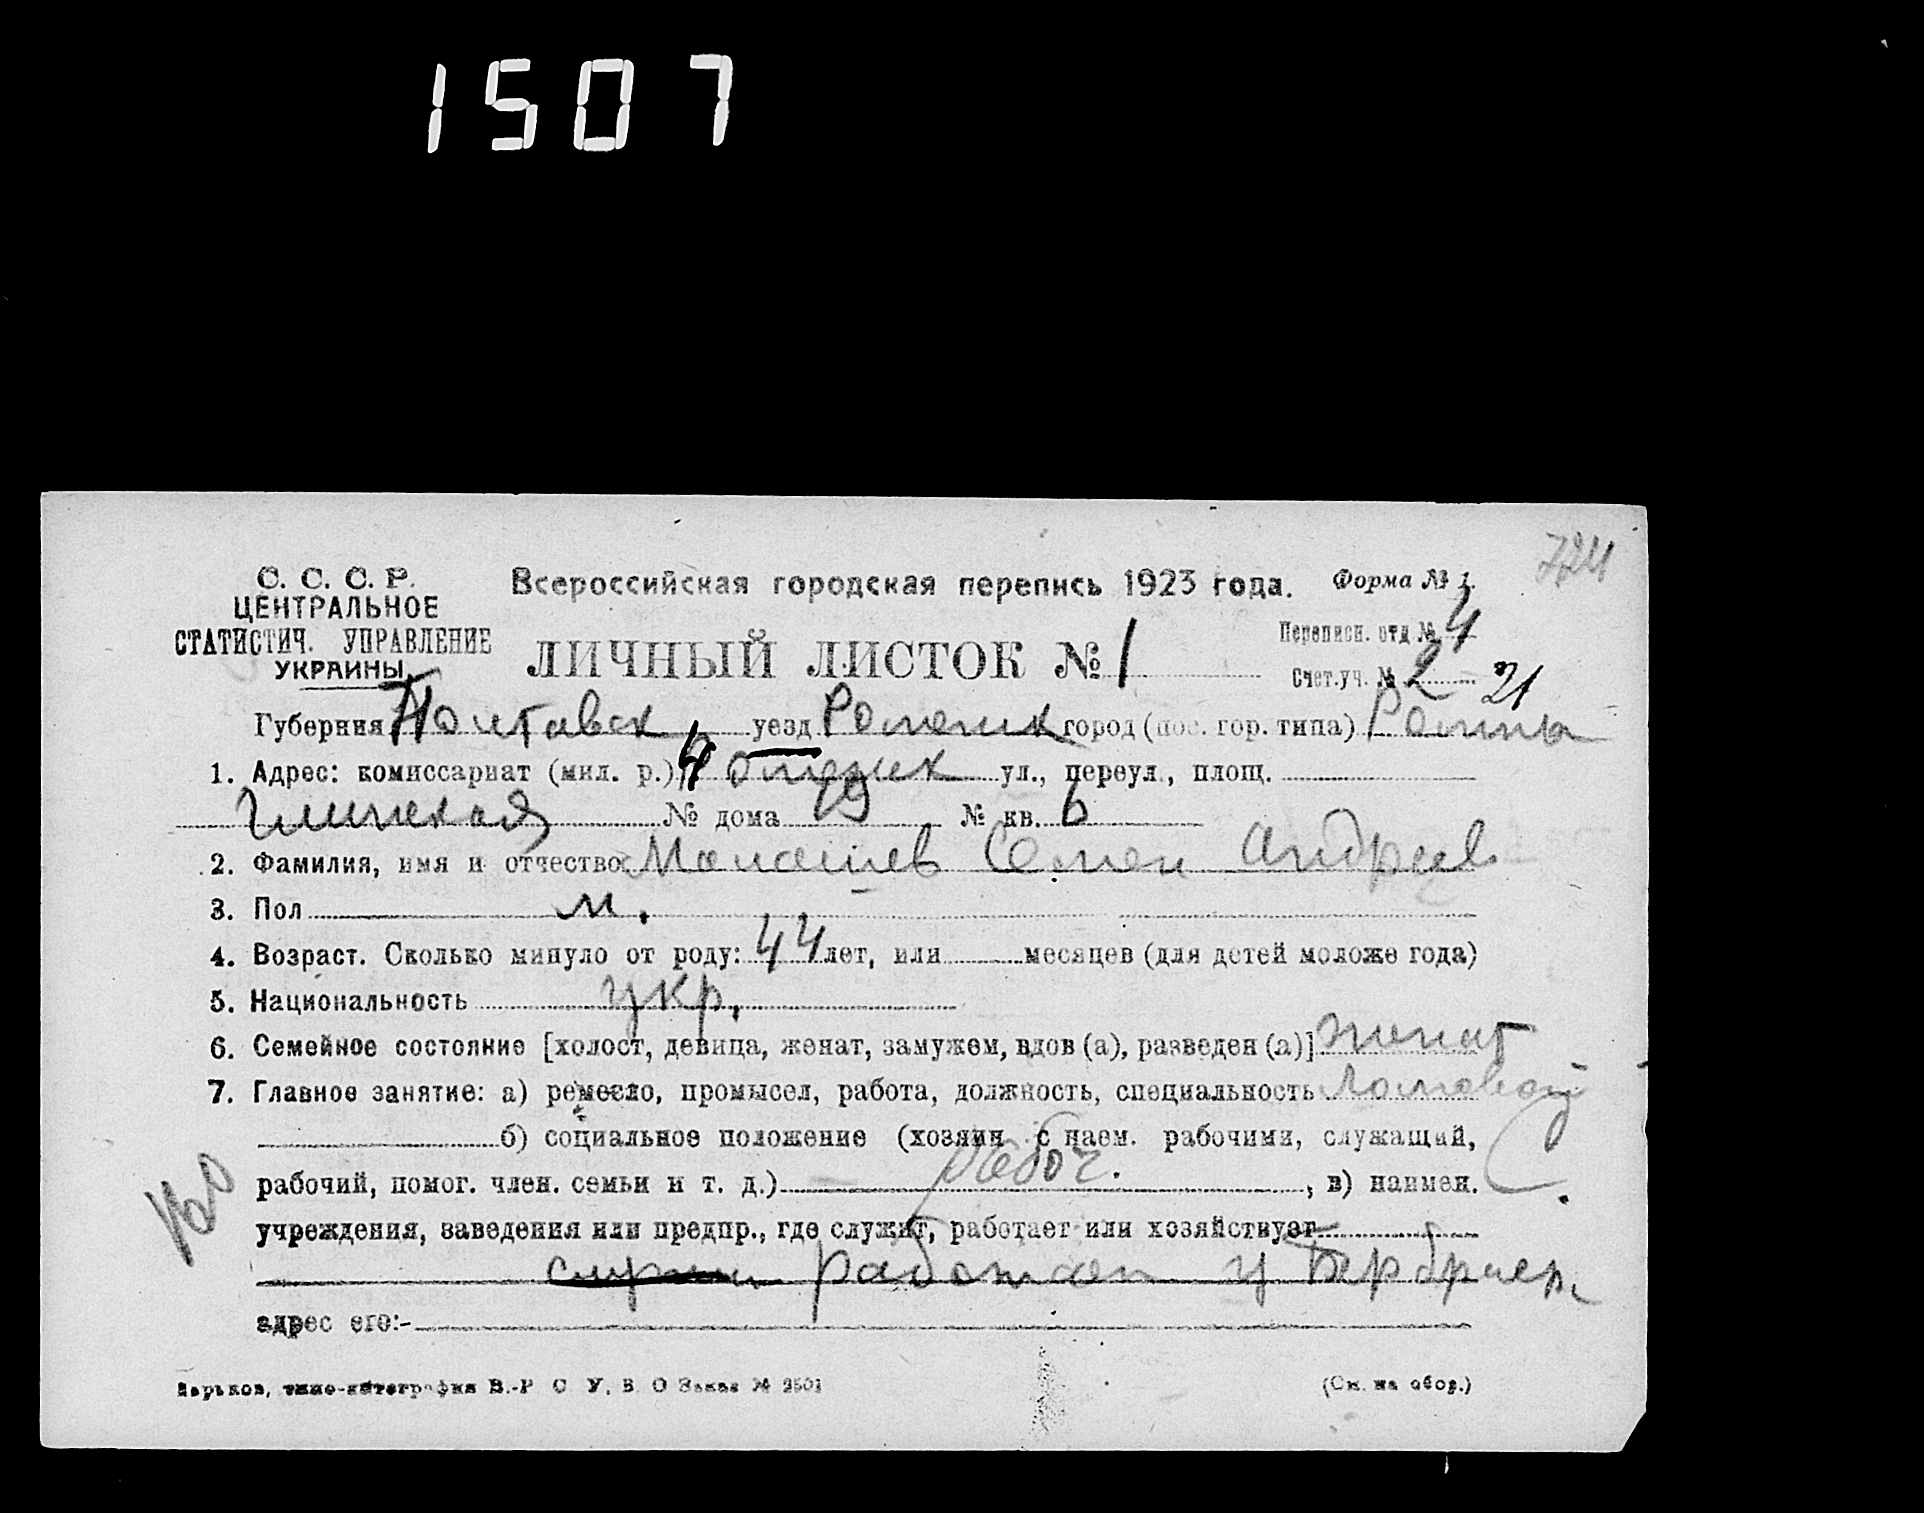 1507
724
С. С. С. Р.
ЦЕНТРАЛЬНОЕ
СТАТИСТИЧ. УПРАВЛЕНИЕ
УКРАИНЫ
Всероссийская городская перепись 1923 года. Форма № 1.
ЛИЧНЫЙ ЛИСТОК № 1
Переписн. отд № 4
Счет.уч. № 2 - 21
Губерния Полтавск уезд Роменск город (пос. гор. типа) Ромны
1. Адрес: комиссариат (мил. р.) 4 ул., переул., площ.
Глинская № дома 79 № кв. 6
2. Фамилия, имя и отчество: Малашев Семен Андреев
3. Пол м.
4. Возраст. Сколько минуло от роду: 44 лет, или месяцев (для детей моложе года)
5. Национальность укр.
6. Семейное состояние [холост, девица, женат, замужем, вдов (а), разведен (а)] женат
7. Главное занятие: а) ремесло, промысел, работа, должность, специальность ломовой
б) социальное положение (хозяин с наем. рабочими, служащий,
рабочий, помог. член. семьи и т. д.) рабоч. , в) наимен.
учреждения, заведения или предпр., где служит, работает или хозяйствует
работает у
адрес его:-
Харьков, типо-литография В.-Р С У. В О Заказ № 3501
(См. на обор.)